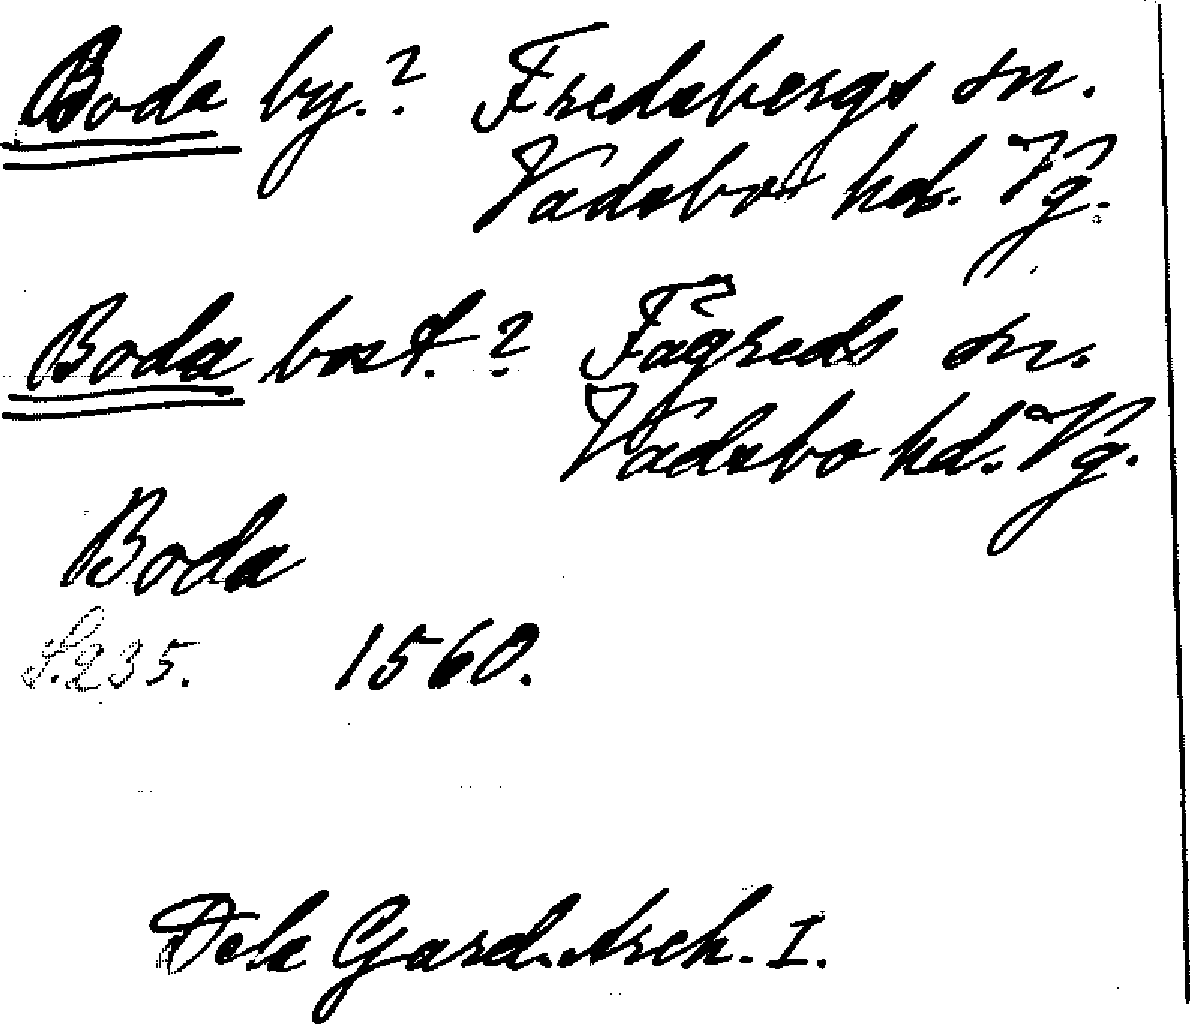 Boda by.? Fredsbergs sn.
Vadsbo hd. Vg.
Boda bost.? Fägreds sn.
Vadsbo hd. Vg.
Boda
S. 235. 1560.
Dela Gard. Arch. I.